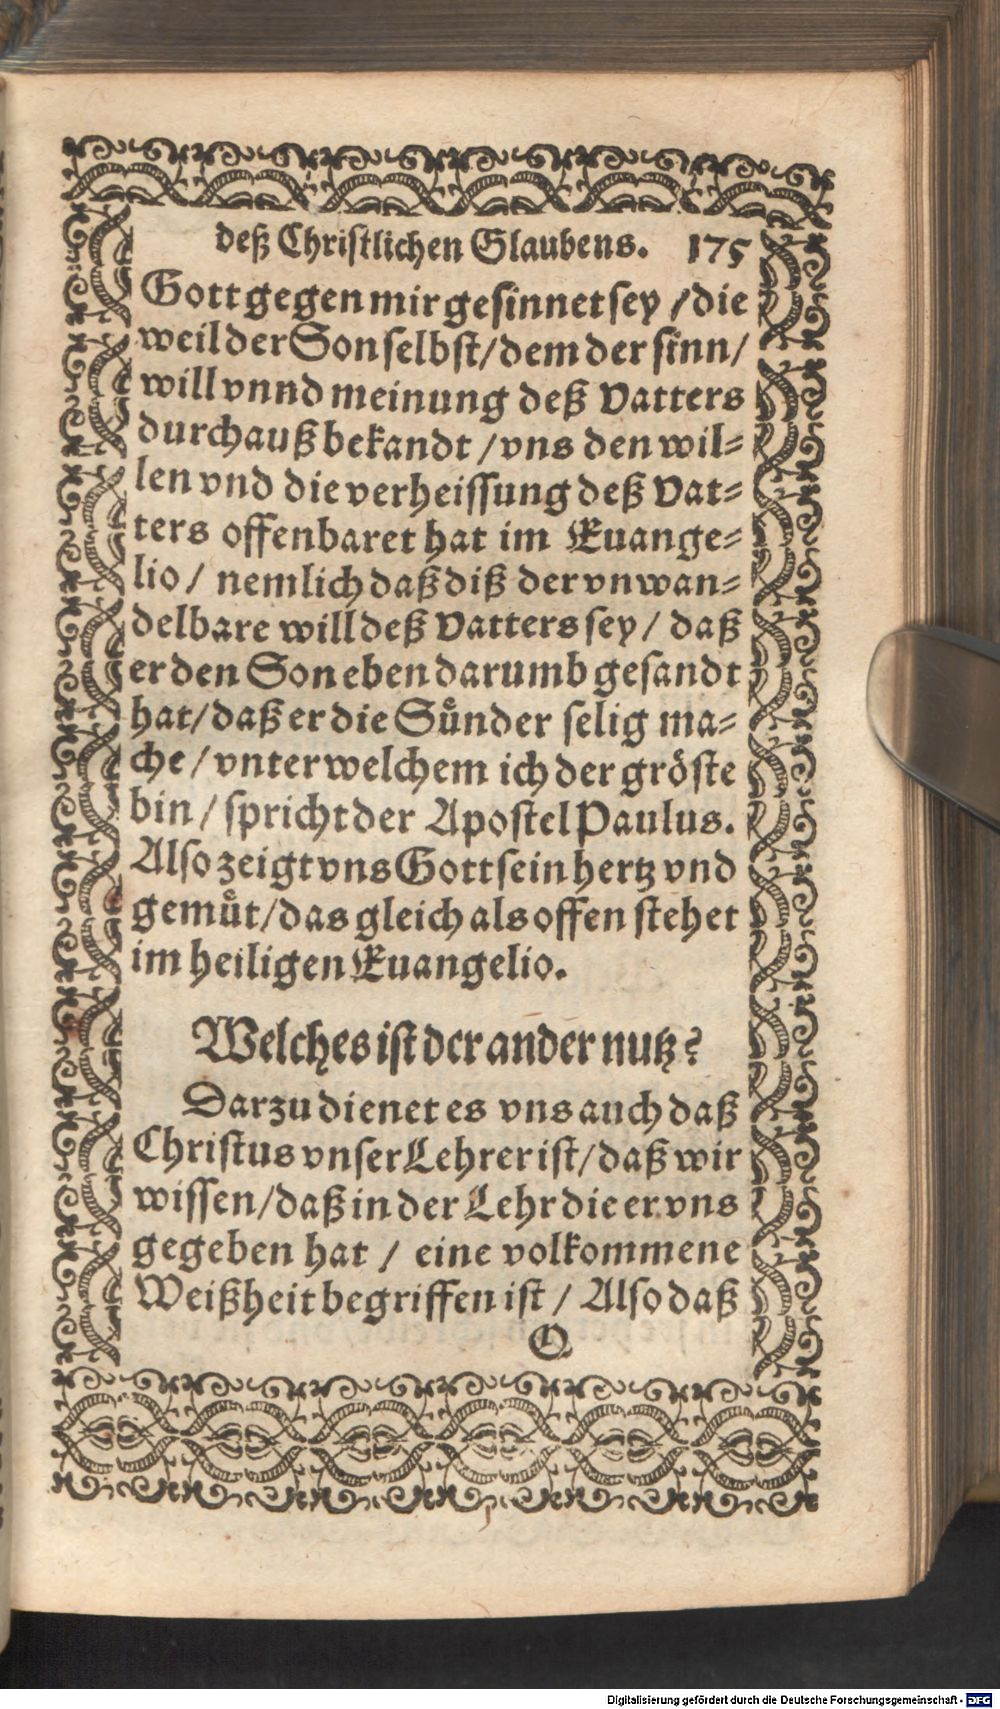 deß Christlichen Glaubens. 175
Gott gegen mir gesinnet sey / die
weil der Son selbst / dem der sinn /
will vnnd meinung deß Vatters
durchauß bekandt / vns den wil⸗
len vnd die verheissung deß Vat⸗
ters offenbaret hat im Euange⸗
lio / nemlich daß diß der vnwan⸗
delbare will deß Vatters sey / daß
er den Son eben darumb gesandt
hat / daß er die Sůnder selig ma⸗
che / vnter welchem ich der gröste
bin / spricht der Apostel Paulus.
Also zeigt vns Gott sein hertz vnd
gemůt / das gleich als offen stehet
im heiligen Euangelio.
Welches ist der ander nutz?
Darzu dienet es vns auch daß
Christus vnser Lehrer ist / daß wir
wissen / daß in der Lehr die er vns
gegeben hat / eine volkommene
Weißheit begriffen ist / Also daß
Q
Digitalisierung gefördert durch die Deutsche Forschungsgemeinschaft - DFG